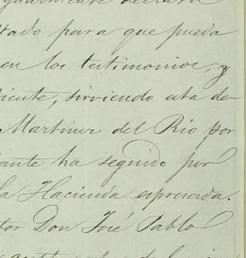 tado para que pueda
en los testimonios, y
diente, sirviendo esta de
Martinez del Rio por
ante ha seguido por
la Hacienda espresada.
tor Don José Pablo